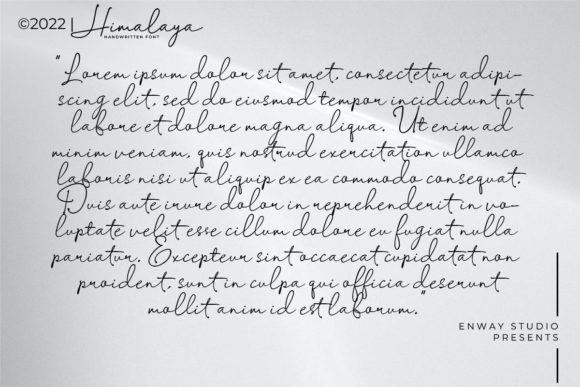 ©2022 | Himalaya
HANDWRITTEN FONT
"Lorem ipsum dolor sit amet, consectetur adipi-
scing elit, sed do eiusmod tempor incididunt ut
labore et dolore magna aliqua. Ut enim ad
minim veniam, quis nostrud exercitation ullamco
laboris nisi ut aliquip ex ea commodo consequat.
Duis aute irure dolor in reprehenderit in vo-
luptate velit esse cillum dolore eu fugiat nulla
pariatur. Excepteur sint occaecat cupidatat non
proident, sunt in culpa qui officia deserunt
mollit anim id est laborum."
ENWAY STUDIO
PRESENTS